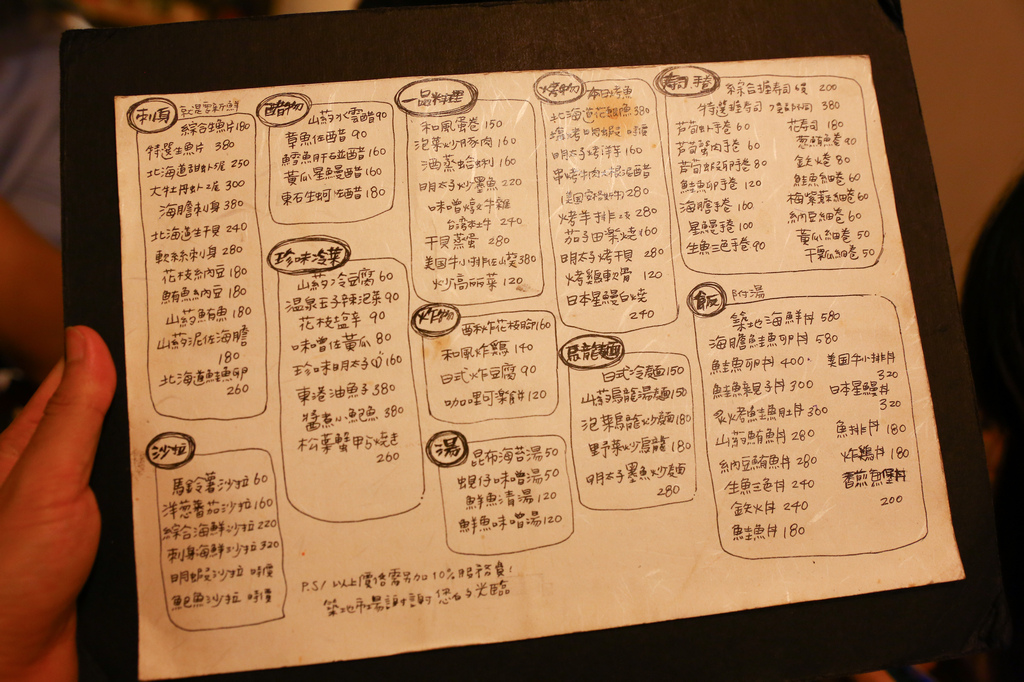 刺身
綜合生魚片180
特選生魚片 380
北海道甜虾 250
大牡丹虾 300
海膽刺身 380
北海道生干貝 240
軟絲刺身 280
花枝納豆 180
鮪魚納豆 180
山葯鮪魚 180
山葯泥佐海膽
180
北海道鮭魚卵
260
沙拉
馬鈴薯沙拉 60
洋葱蕃茄沙拉 160
綜合海鮮沙拉 220
刺身海鮮沙拉 320
明蝦沙拉 時價
鮑魚沙拉 時價
醋物
山葯水雲醋90
章魚佐醋 90
鱈魚肝 醋 160
黃瓜星鰻醋 160
東石生蚵佐醋 180
珍味冷菜
山葯冷豆腐 60
温泉玉子辣泡菜 90
花枝塩辛 90
味噌佐黃瓜 80
珍味明太子 160
東港油魚子 380
鮑魚 380
松葉蟹甲ら焼き
260
一品料理
和風蛋卷 150
泡菜炒豚肉 160
酒蒸蛤蜊 160
明太子炒墨魚 220
味噌燉牛雜
台湾本土牛 240
干貝蒸蛋 280
美國牛小排 燒 380
炒高麗菜 120
炸物
酥炸花枝 160
和風炸鷄 140
日式炸豆腐 90
咖哩可楽餅 120
湯
昆布海苔湯 50
蜆仔味噌湯 50
鮮魚清湯 120
鮮魚味噌湯 120
烤物 本日烤魚
北海道花鯽魚 380
塩烤明蝦 時價
明太子烤洋芋 160
串烤牛肉土根湯醋
280
烤羊排 280
茄子田楽燒 160
明太子烤干貝 280
烤鷄軟骨 120
日本星鰻白燒
240
烏龍麵
日式冷麵 150
山葯烏龍湯麵 150
泡菜烏龍炒麵 180
野菜炒烏龍 180
明太子墨魚炒麵
280
寿司.手卷
綜合握寿司 200
特選握寿司 380
芦筍虾手卷 60
芦筍蟹肉手卷 80
芦筍虾卵手卷 80
鮭魚卵手卷 120
海膽手卷 160
星鰻手卷 100
生魚三色手卷 90
花寿司 180
葱鮪魚卷 90
鉄火卷 80
鮭魚細卷 60
梅紫蘇細卷 60
納豆細卷 60
黃瓜細卷 50
干瓢細卷 50
飯 附湯
築地海鮮丼 580
海膽鮭魚卵丼 580
鮭魚卵丼 400.
鮭魚親子丼 300
炙烤鮭魚肚丼 360
山葯鮪魚丼 280
納豆鮪魚丼 280
生魚三色丼 240
鉄火丼 240
鮭魚丼 180
美国牛小排丼
320
日本星鰻丼
320
魚排丼 180
炸鷄丼 180
200
P.S/ 以上價格需另加10%服務費!
築地市場謝謝您的光臨